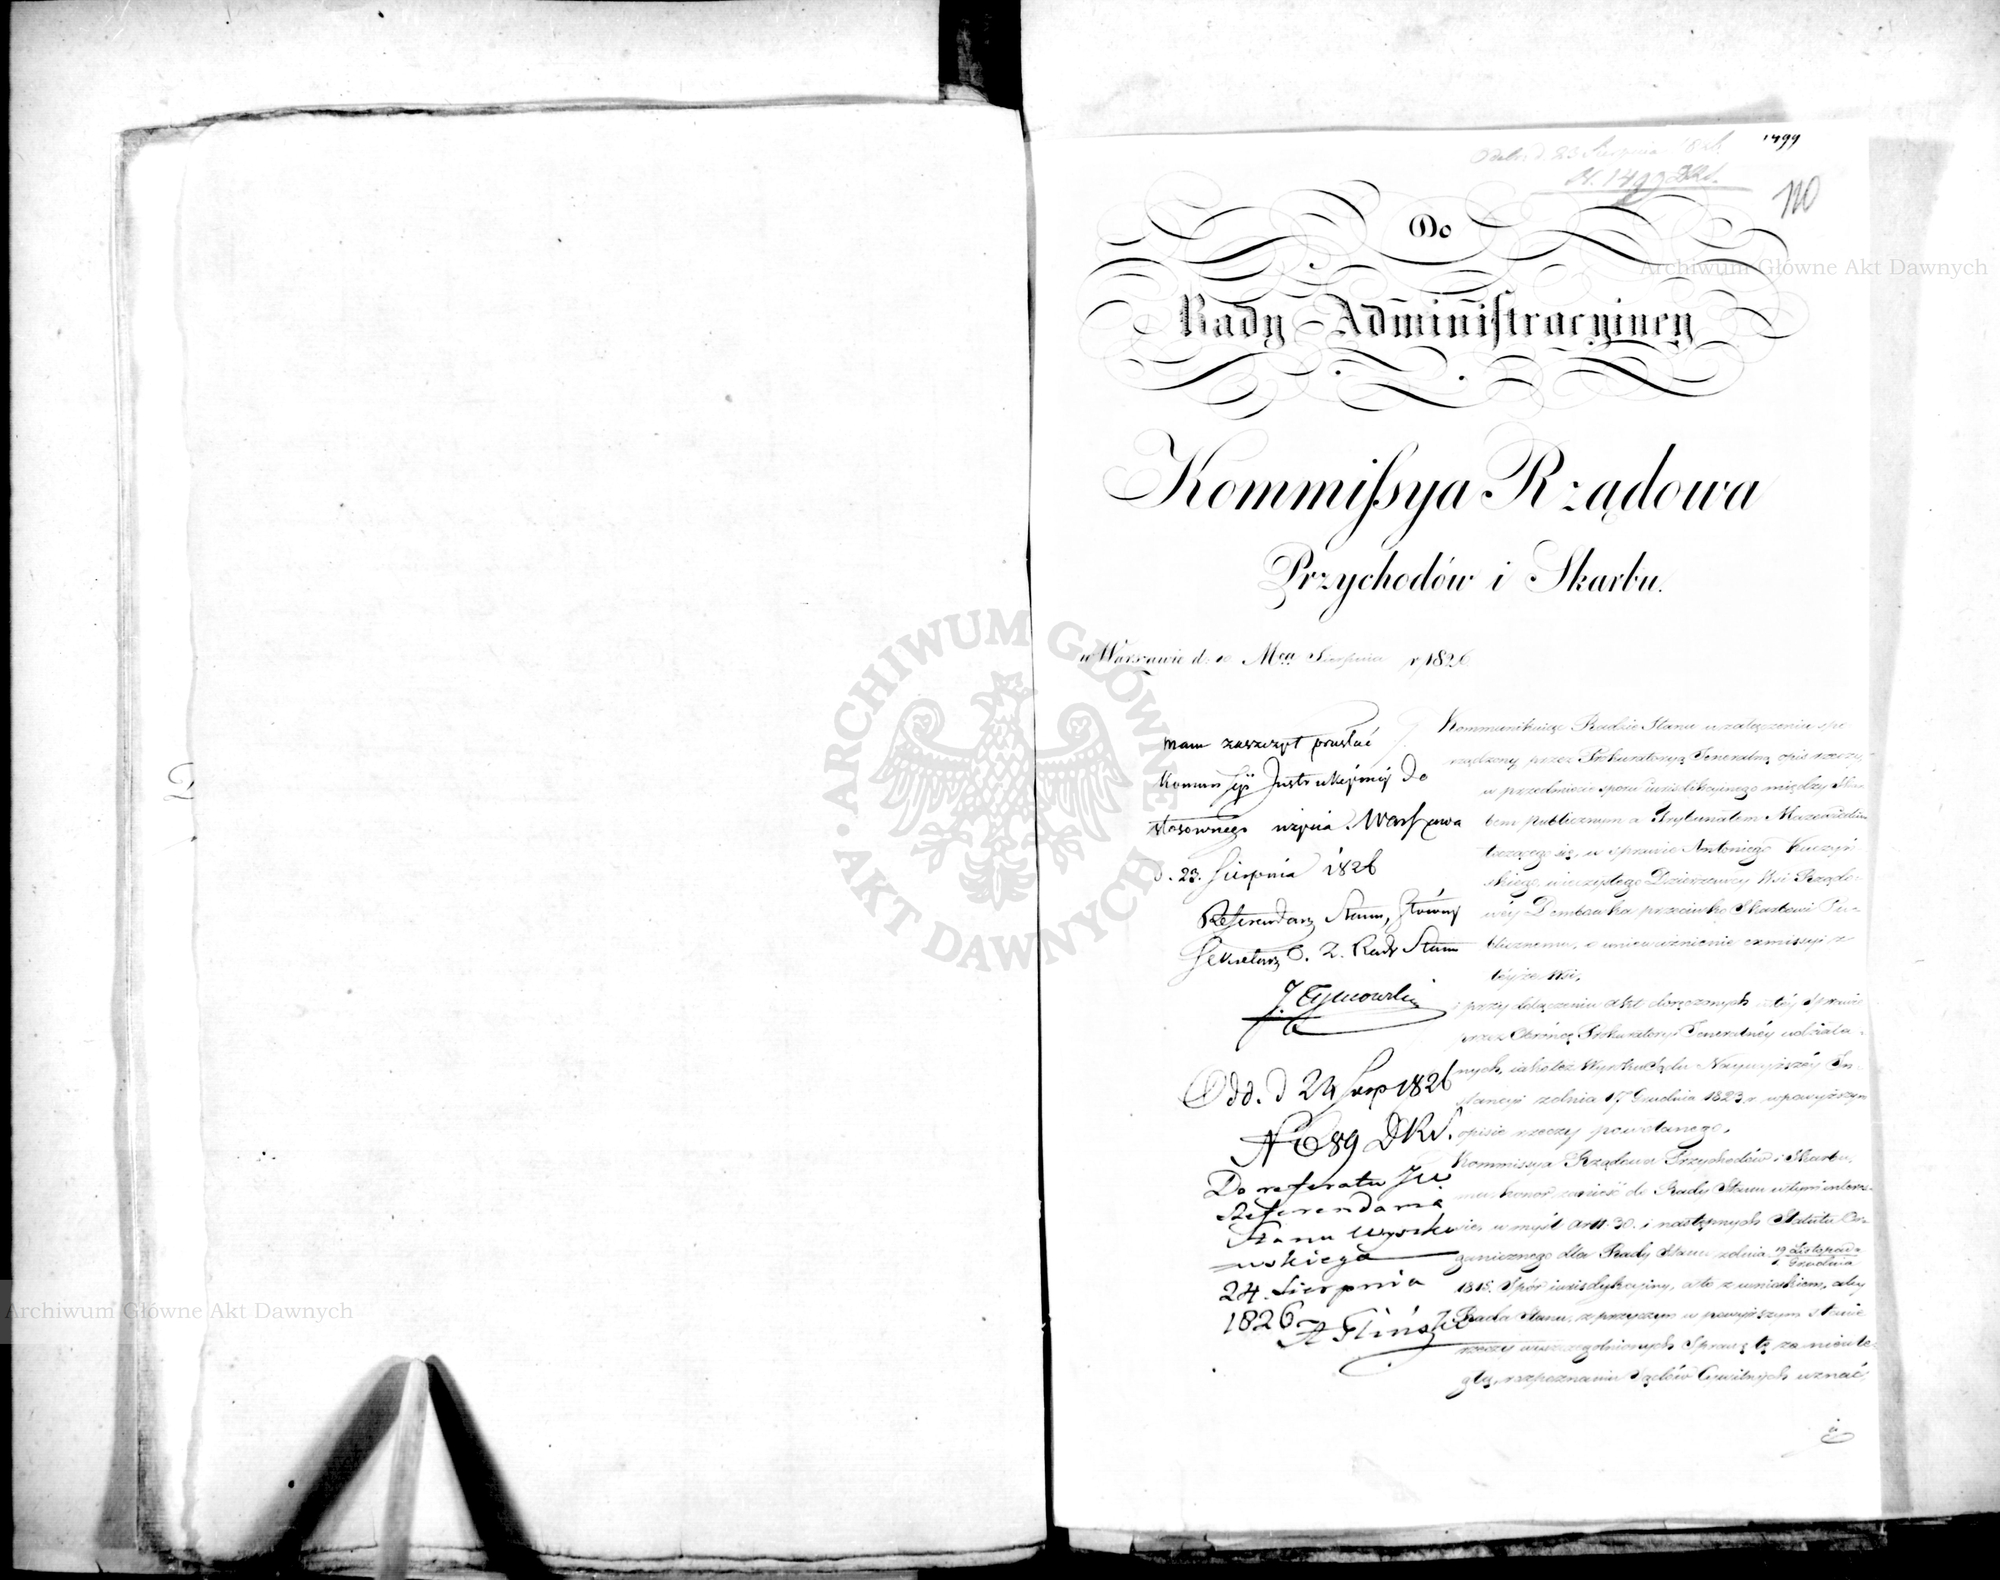 1499
Odebr. d. 23 Sierpnia 1826
N. 1499 DKS.
110
Do
Rady Administracyiney
Kommissya Rządowa
Przychodów i Skarbu.
w Warszawie d. 10 Mca Sierpnia r. 1826
mam zaszczyt przesłać
Kommissyi Instrukcyiney do
stosownego użycia. Warszawa
d. 23. Sierpnia 1826
Referendarz Stanu, Główny
Sekretarz O. Z. Rady Stanu
Odd. d 24 Sierp 1826
N 689 DKS.
Do referatu JW
Referendarza
Stanu Wyczko
wskiego
24. Sierpnia
1826
Kommunikuiąc Radzie Stanu w załączeniu spo
rządzony przez Prokuratoryą Generalną opis rzeczy,
w przedmiocie sporu iurisdikcyinego między Skar
bem publicznym a Trybunałem Mazowieckim
toczącego się, w sprawie Antoniego Kuczyń
skiego wieczystego Dzierżawcy Wsi Rządo
wéy Dembowka przeciwko Skarbowi Pu
blicznemu, o unieważnienie exmissyi z
téyże Wsi,
i przy dołączeniu akt doręcznych w téy Sprawie
przez Obrońcę Prokuratoryi Generalnéy udziela
nych, iakoteż Wyroku Sądu Naywyższéy In
stancyi z dnia 17. Grudnia 1823 r. w powyższym
opisie rzeczy powołanego,
Kommissya Rządowa Przychodów i Skarbu,
ma honor zanieść do Rady Stanu w tym interes
sie, w myśl Artt. 30. i następnych Statutu Or
ganicznego dla Rady Stanu z dnia 19 Listopada / 1 Grudnia
1815. Spór iurisdykcyiny, a to z wnioskiem, aby
Rada Stanu, z przyczyn w powyższym stanie
rzeczy wyszczególnionych Sprawę tę za nieule
głą, rozpoznaniu Sądów Cywilnych uznać,
i
ARCHIWUM GŁÓWNE AKT DAWNYCH
Archiwum Główne Akt Dawnych
Archiwum Główne Akt Dawnych